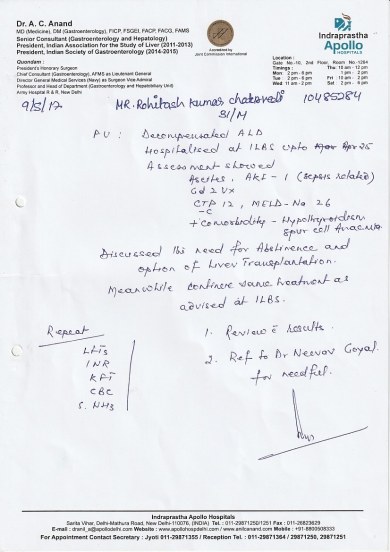 Dr. A. C. Anand
MD (Medicine), DM (Gastroenterology), FICP, FSGEI, FACP, FACG, FAMS
Senior Consultant (Gastroenterology and Hepatology)
President, Indian Association for the Study of Liver (2011-2013)
President, Indian Society of Gastroenterology (2014-2015)
Quondam :
President's Honorary Surgeon
Chief Consultant (Gastroenterology), AFMS as Lieutenant General
Director General Medical Services (Navy) as Surgeon Vice Admiral
Professor and Head of Department (Gastroenterology and Hepatobiliary Unit)
Army Hospital R & R, New Delhi
Accredited by
Joint Commission International
Indraprastha
Apollo
HOSPITALS
Location :
Gate No-10, 2nd Floor, Room No-1204
Timings :
Mon 2 pm - 6 pm
Tue 2 pm - 6 pm
Wed 11 am - 2 pm
Thu 10 am - 12 pm
1 pm - 2 pm
Fri 10 am - 2 pm
Sat 2 pm - 6 pm
9/5/17 MR. Rohitash Kumar 10485284
31/M
PU : Decompensated ALD
Hospitalised at ILBS upto Apr 25
Assessment showed
Ascites, AKI - 1 (Sepsis related)
Gd 2 Vx
CTP 12, MELD-Na 26
-C
+ Comorbidity - Hypothyroidism
Spur cell Anaemia
Discussed the need for Abstinence and
option of Liver Transplantation.
Meanwhile continue same treatment as
advised at ILBS.
Repeat
LFTs
INR
KFT
CBC
S. NH3
1. Review c̄ results.
2. Ref to Dr Neerav Goyal
for needful.
Indraprastha Apollo Hospitals
Sarita Vihar, Delhi-Mathura Road, New Delhi-110076, (INDIA) Tel. : 011-29871250/1251 Fax : 011-26823629
E-mail : dranil_a@apollodelhi.com Website : www.apollohospdelhi.com / www.anilcanand.com Mobile : +91-8800508333
For Appointment Contact Secretary : Jyoti 011-29871355 / Reception Tel. : 011-29871364 / 29871250, 29871251